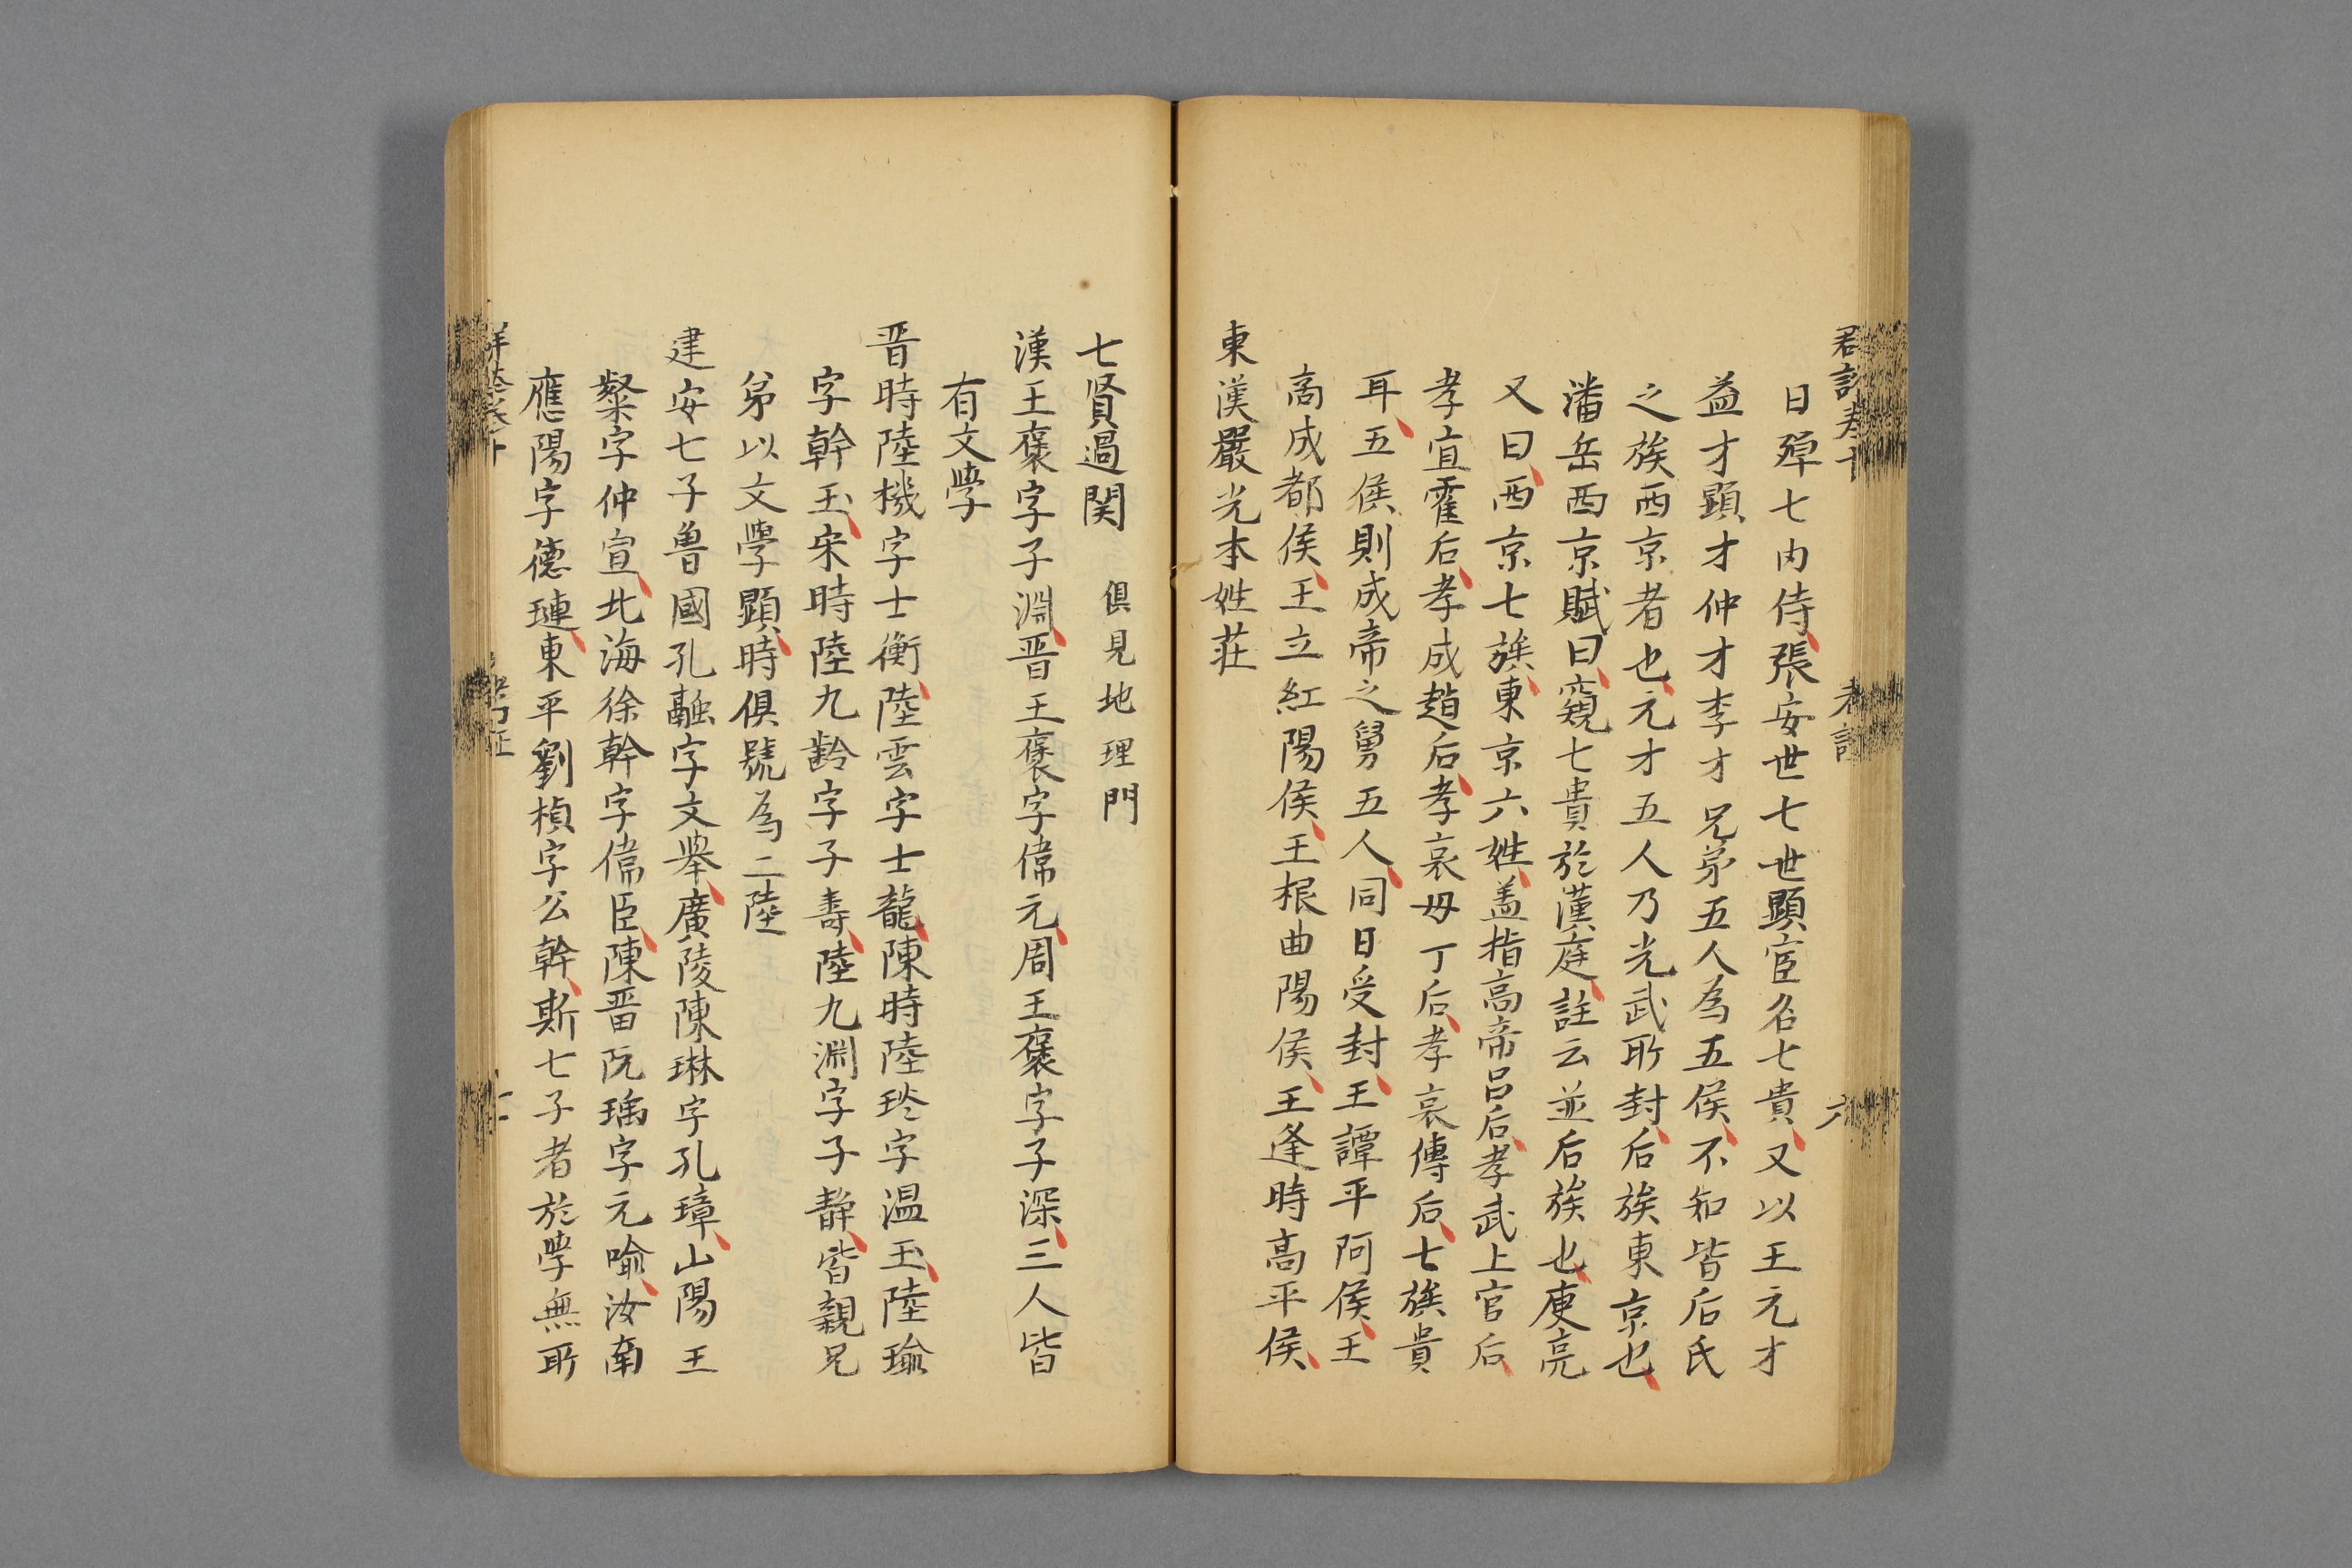 日磾七內侍張安世七世顯宦名七貴又以王元才
益才顯才仲才李才兄弟五人為五侯不知皆后氏
之族西京者也元才五人乃光武所封后族東京也
潘岳西京賦曰窺七貴於漢庭註云並后族也庾亮
又曰西京七族東京六姓盖指高帝呂后孝武上官后
孝宣霍后孝成趙后孝哀毋丁后孝哀傅后七族貴
耳五侯則成帝之舅五人同日受封王譚平阿侯王
啇成都侯王立紅陽侯王根曲陽侯王逢時高平侯
東漢嚴光本姓莊
七賢過関 俱見地理門
漢王褒字子淵晋王裒字偉元周王褒字子深三人皆
有文學
晋時陸機字士衡陸雲字士龍陳時陸玠字温玉陸瑜
字幹玉宋時陸九齡字子壽陸九淵字子靜皆親兄
弟以文學顯時俱號為二陸
建安七子魯國孔融字文舉廣陵陳琳字孔璋山陽王
粲字仲宣北海徐幹字偉臣陳畱阮瑀字元喻汝南
應陽字德璉東平劉楨字公幹斯七子者於學無所